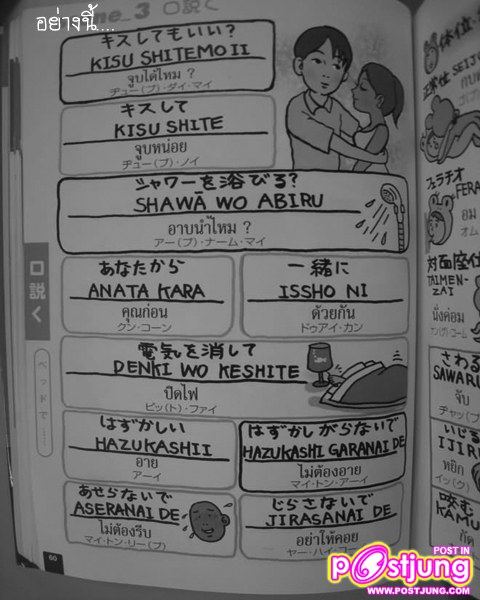 อย่างนี้...
ne_3 口説く
キスしてもいい?
KISU SHITEMO II
จูบได้ไหม ?
ヂュー(プ)・ダイ・マイ
キスして
KISU SHITE
จูบหน่อย
ヂュー(プ)・ノイ
シャワーを浴びる?
SHAWA WO ABIRU
อาบน้ำไหม ?
アー(プ)・ナーム・マイ
あなたから
ANATA KARA
คุณก่อน
クン・コーン
一緒に
ISSHO NI
ด้วยกัน
ドゥアイ・カン
電気を消して
DENKI WO KESHITE
ปิดไฟ
ピッ(ト)・ファイ
はずかしい
HAZUKASHII
อาย
アーイ
はずかしがらないで
HAZUKASHI GARANAI DE
ไม่ต้องอาย
マイ・トン・アーイ
あせらないで
ASERANAI DE
ไม่ต้องรีบ
マイ・トン・リー(プ)
じらさないで
JIRASANAI DE
อย่าให้คอย
ヤー・ハイ・コーイ
口説く
ベッドで
60
体位
正常位 SEIJO
フェラチオ
FERA
อม
オム
対面座位
TAIMEN-
ZAI
นั่งค่อม
さわる
SAWARU
จับ
ヂャッ(プ)
いじる
IJIR
หยิก
イッ(ク)
咬む
KAMU
กัด
POST IN
Postjung
WWW.POSTJUNG.COM